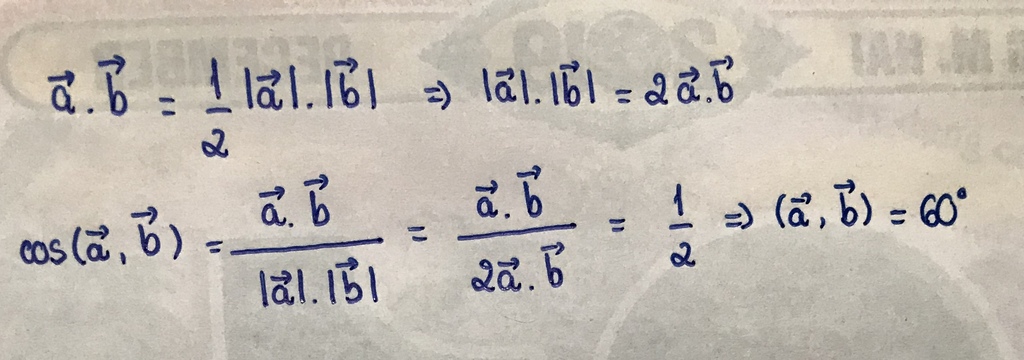 a⃗.b⃗ = 1/2 |a⃗|.|b⃗| => |a⃗|.|b⃗| = 2a⃗.b⃗
cos(a⃗, b⃗) = a⃗.b⃗ / |a⃗|.|b⃗| = a⃗.b⃗ / 2a⃗.b⃗ = 1/2 => (a⃗, b⃗) = 60°